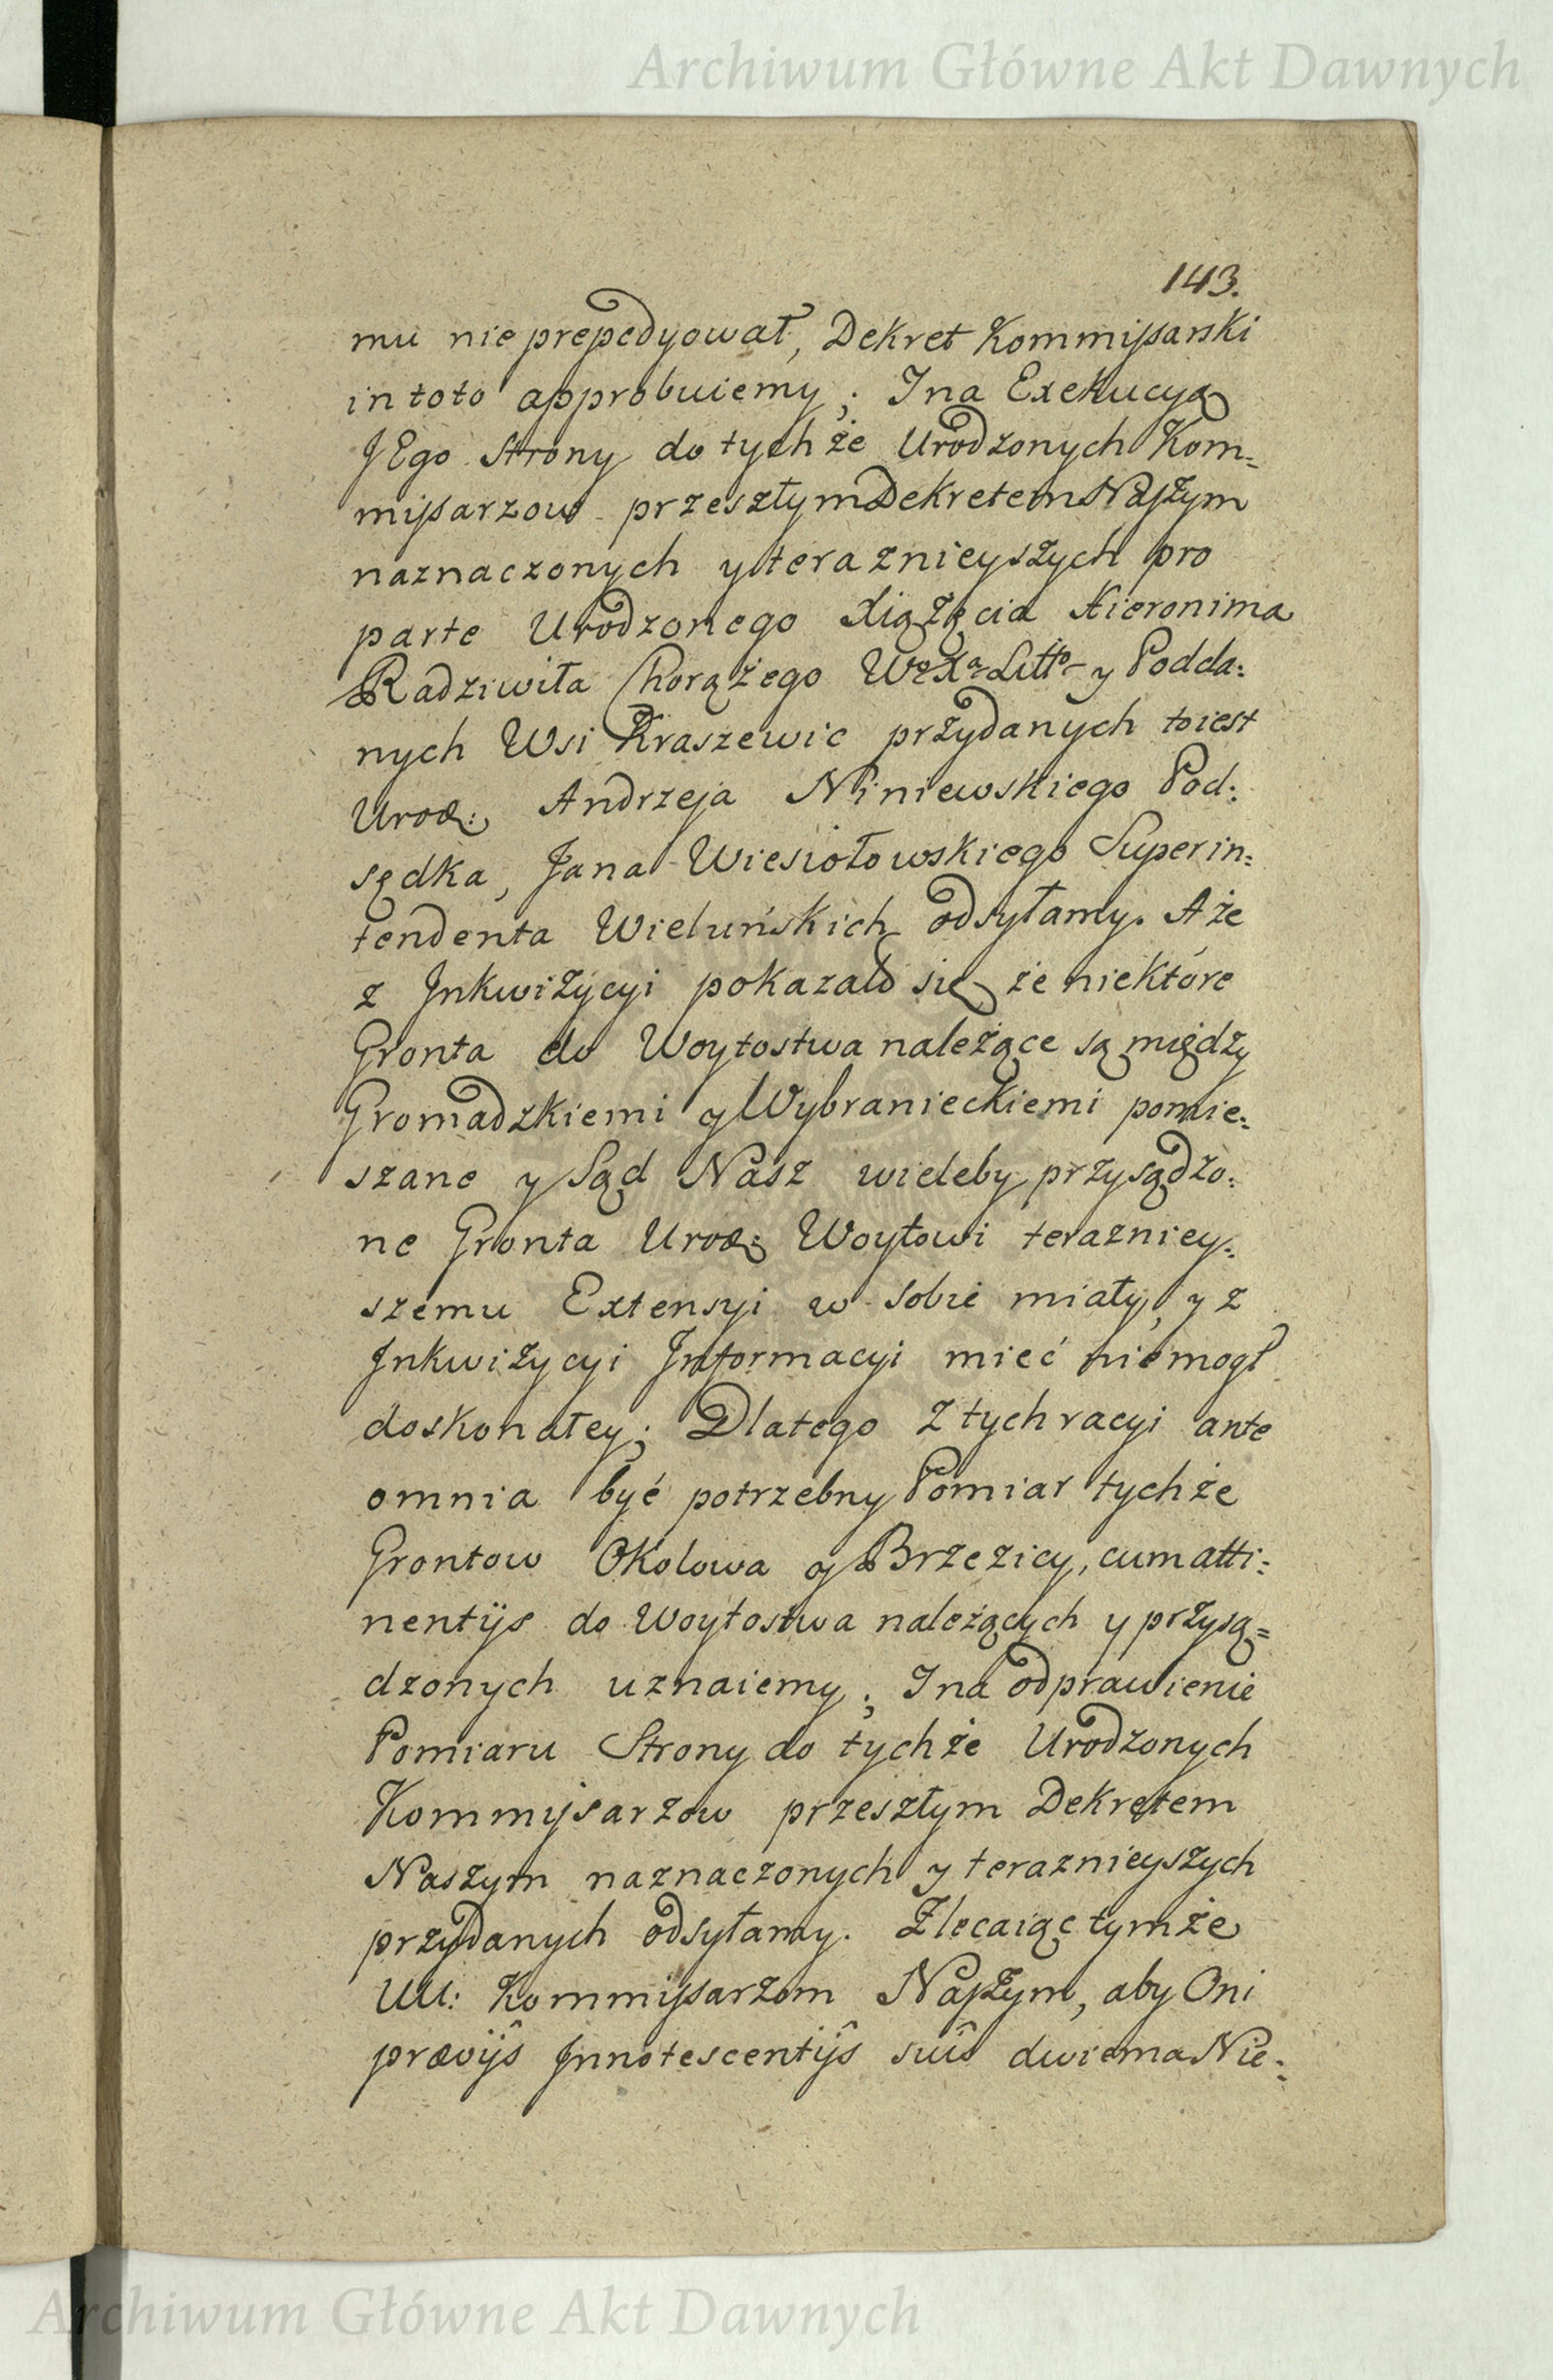 Archiwum Główne Akt Dawnych
143.
mu nie prepedyował, Dekret Kommissarski
in toto approbuiemy; I na Exekucyą
JEgo Strony do tychże Urodzonych Kom=
missarzow przeszłym Dekretem Naszym
naznaczonych y teraznieyszych pro
parte Urodzonego Xiążęcia Hieronima
Radziwiła Chorążego Wo Xa Litto y Podda:
nych Wsi Kraszewic przydanych toiest
Urod: Andrzeja Niniewskiego Pod:
sędka, Jana Wiesiołowskiego Superin:
tendenta Wieluńskich odsyłamy. A że
z Jnkwiżycyi pokazało się że niektóre
Gronta do Woytostwa należące są między
Gromadzkiemi y Wybranieckiemi pomie:
szane y Sąd Nasz wieleby przysądzo:
ne Gronta Urod: Woytowi terazniey:
szemu Extensyi w sobie miały, y z
Jnkwiżycyi Jnformacyi mieć niemogł
doskonałey; Dlatego z tych racyi ante
omnia być potrzebny Pomiar tychże
Grontow Okolowa y Brzezicy, cum atti:
nentijs do Woytostwa należących y przysą=
dzonych uznaiemy; I na odprawienie
Pomiaru Strony do tychże Urodzonych
Kommissarzow przeszłym Dekretem
Naszym naznaczonych y teraznieyszych
przydanych odsyłamy. Zlecaiąc tymże
UU: Kommissarzom Naszym, aby Oni
prævijs Jnnotescentijs suis dwiema Nie:
Archiwum Główne Akt Dawnych